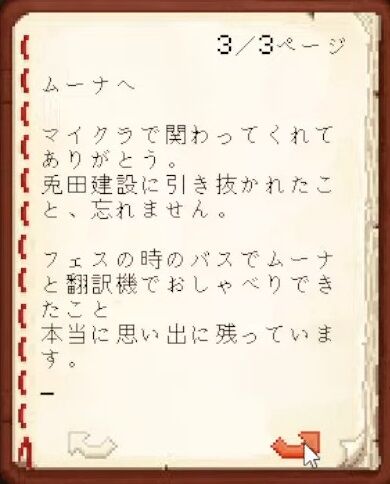 3/3ページ
ムーナへ
マイクラで関わってくれて
ありがとう。
兎田建設に引き抜かれたこ
と、忘れません。
フェスの時のバスでムーナ
と翻訳機でおしゃべりでき
たこと
本当に思い出に残っていま
す。